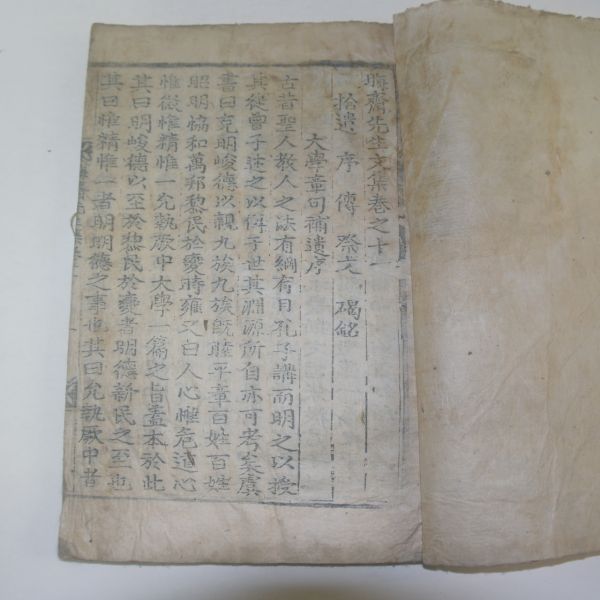 晦齋先生文集卷之十一
拾遺 序 傳 祭文 碣銘
大學章句補遺序
古昔聖人敎人之法有綱有目孔子講而明之以授
其徒曾子述之以傳于世其淵源所自亦可考矣虞
書曰克明峻德以親九族九族旣睦平章百姓百姓
昭明協和萬邦黎民於變時雍又曰人心惟危道心
惟微惟精惟一允執厥中大學一篇之旨蓋本於此
其曰明峻德以至於黎民於變者明德新民之至也
其曰惟精惟一者明明德之事也其曰允執厥中者